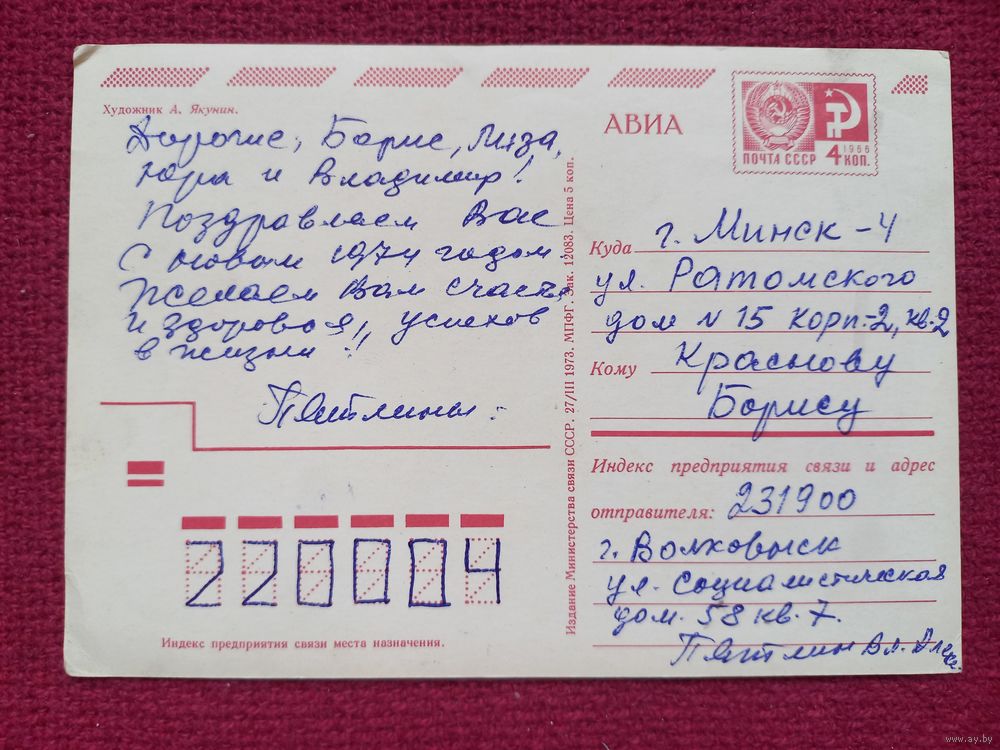 Художник А. Якунин.
Дорогие, Борис, Лиза,
Юра и Владимир!
Поздравляем Вас
С новым 1974 годом.
Желаем Вам счастья
и здоровья, успехов
в жизни!
Пятлины.
Индекс предприятия связи места назначения.
220004
Издание Министерства связи СССР. 27/III 1973. МПФГ. Зак. 12083. Цена 5 коп.
АВИА
ПОЧТА СССР
1966
4 КОП.
Куда г. Минск-4
ул. Ратомского
дом N 15 корп.-2, кв.2
Кому Краснову
Борису
Индекс предприятия связи и адрес
отправителя: 231900
г. Волковыск
ул. Социалистическая
дом. 58 кв. 7.
Пятлин Вл.
www.ay.by